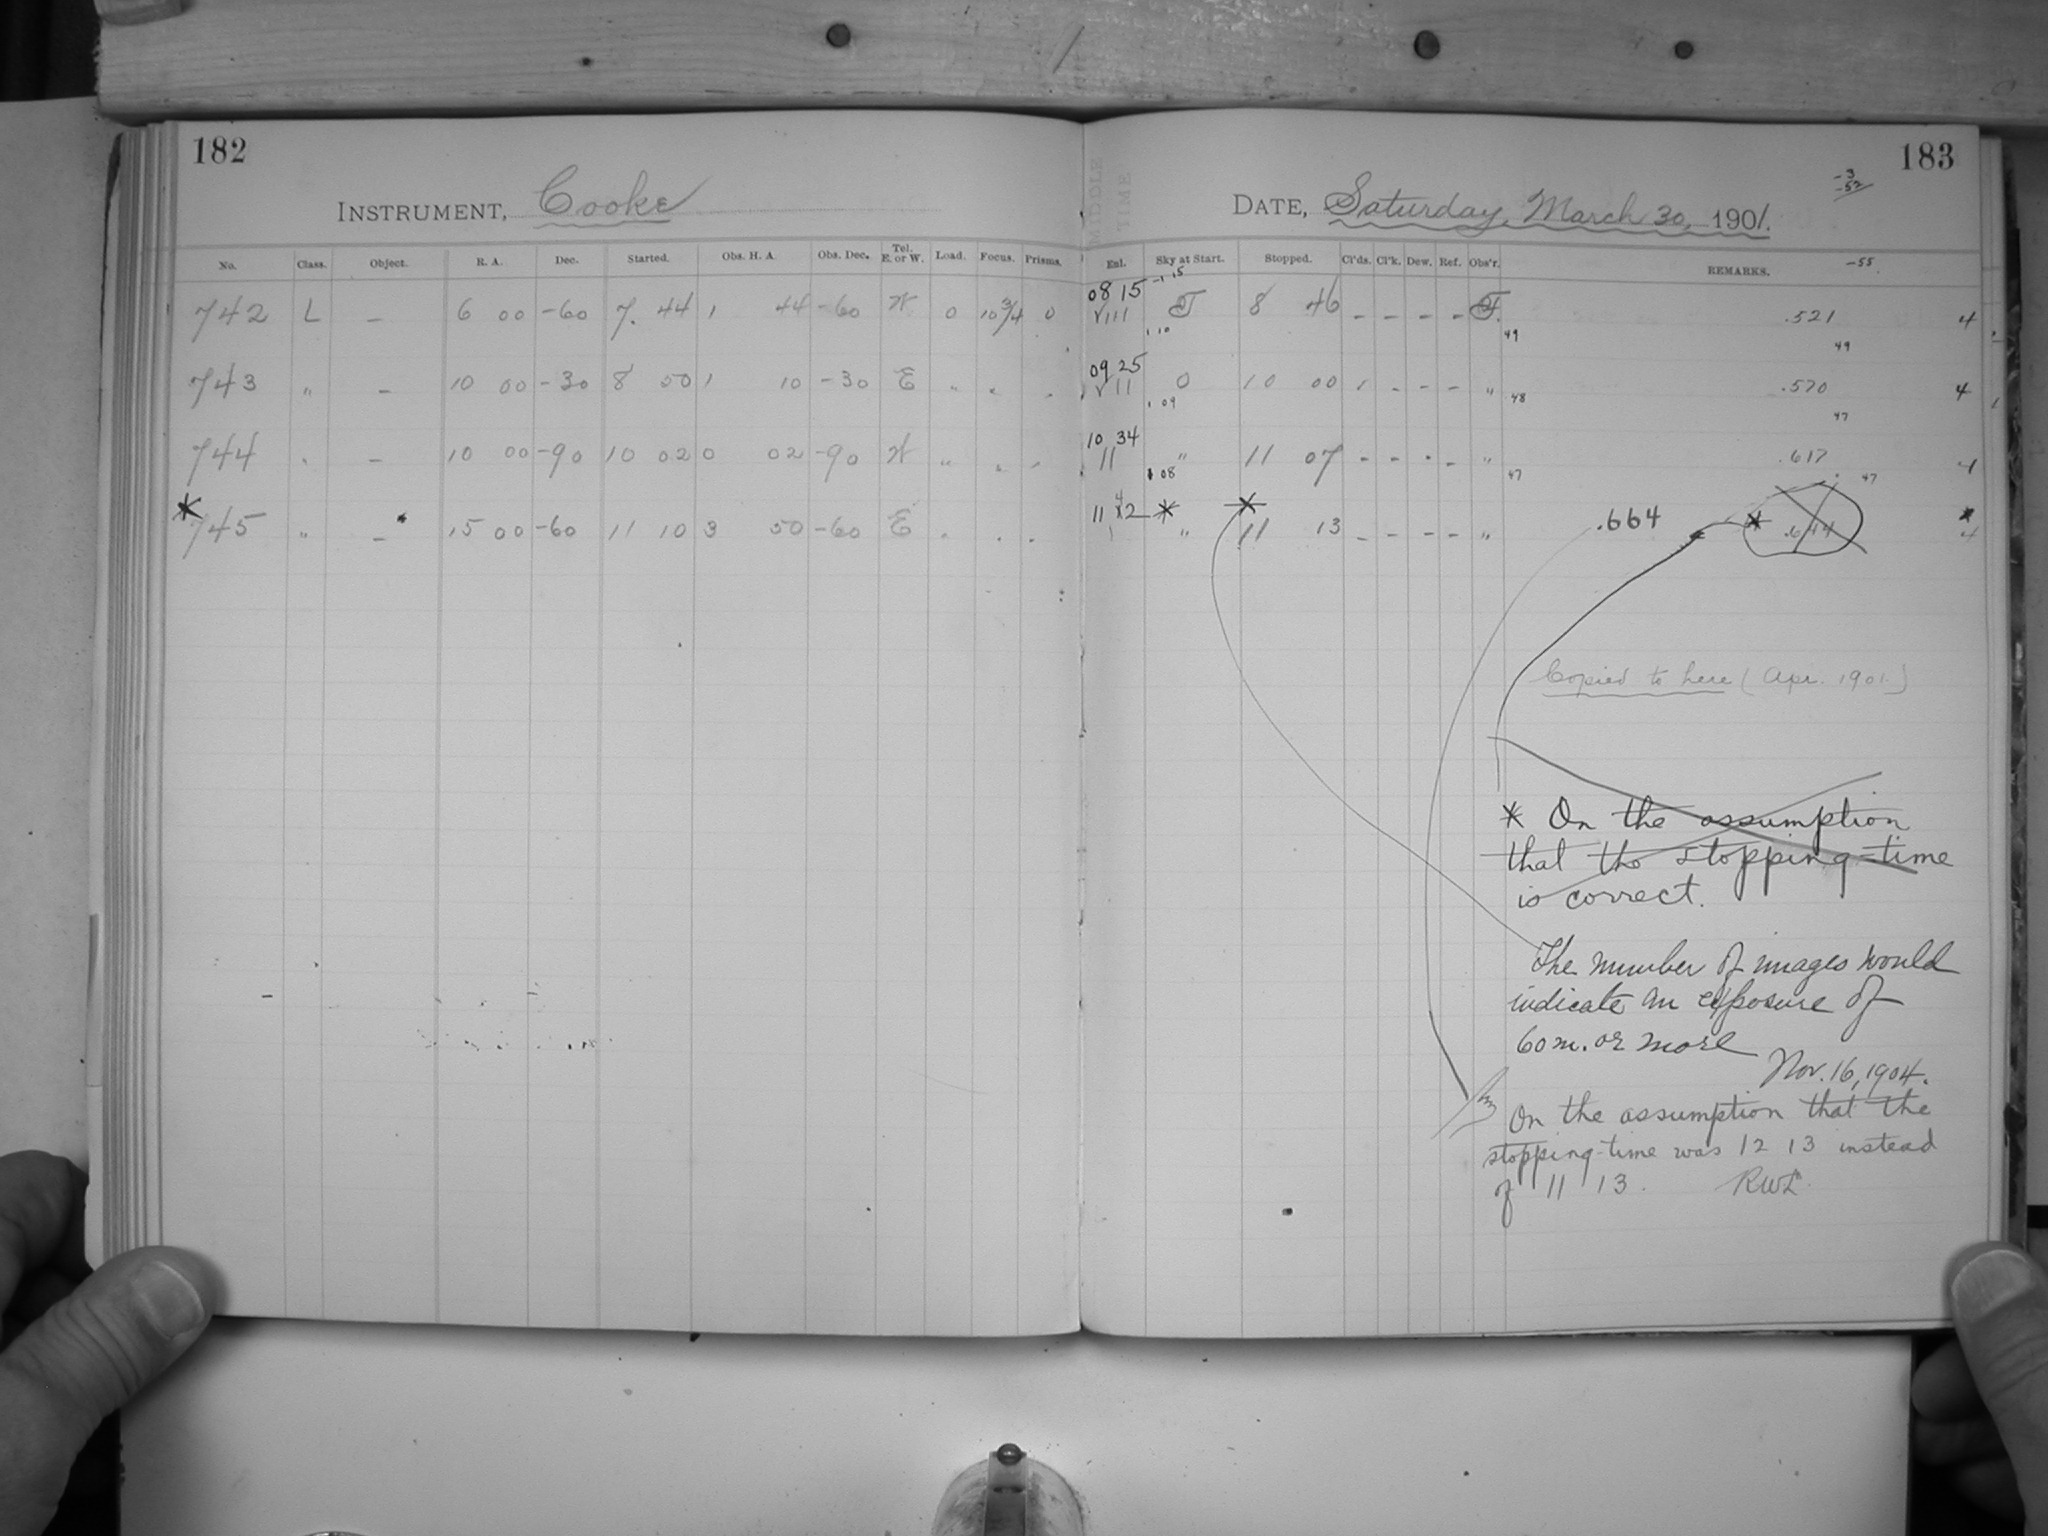 182
INSTRUMENT, Cooke
No. Class. Object. R. A. Dec. Started. Obs. H. A. Obs. Dec. Tel. E. or W. Load. Focus. Prisms.
742 L — 6 00 -60 7 44 1 44 -60 W 0 10 3/4 0
743 " — 10 00 -30 8 50 1 10 -30 E " "
744 — 10 00 -90 10 02 0 02 -90 W " "
*745 " — 15 00 -60 11 10 3 50 -60 E
183
-3
-52
MIDDLE TIME
DATE, Saturday, March 30, 1901.
Enl. Sky at Start. Stopped. Cl'ds. Cl'k. Dew. Ref. Obs'r. REMARKS. -55.
08 15 -1 15
VIII 8 46 - - - - .521 4
1 10 49 49
09 25
VII 0 10 00 1 - - - " .570 4
1 09 48 47
10 34
11 " 11 07 - - - - " .617 4
1 08 47 47
11 42 * *
" 11 13 - - - - " .664 * .644 4
Copied to here (Apr. 1901.)
* On the assumption
that the stopping-time
is correct.
The number of images would
indicate an exposure of
60 m. or more
Nov. 16, 1904.
On the assumption that the
stopping-time was 12 13 instead
of 11 13. RWL